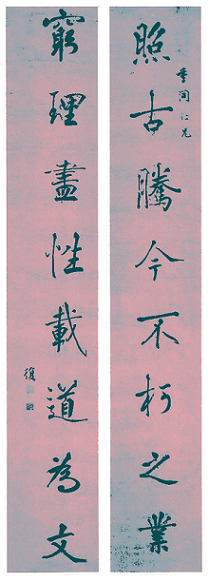 照古騰今不朽之業
季同仁兄
窮理盡性載道為文
復